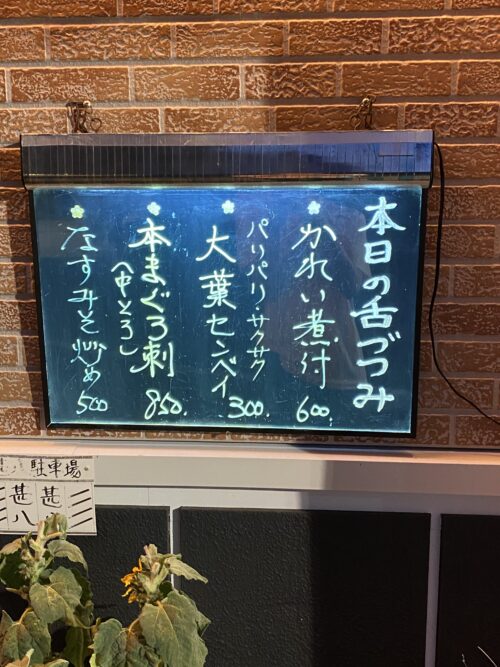 本日の舌づつみ
かれい煮付 600.
パリパリサクサク
大葉センベイ 300.
本まぐろ刺 850.
(中とろ)
なすみそ炒め 500
駐車場
甚 甚
八